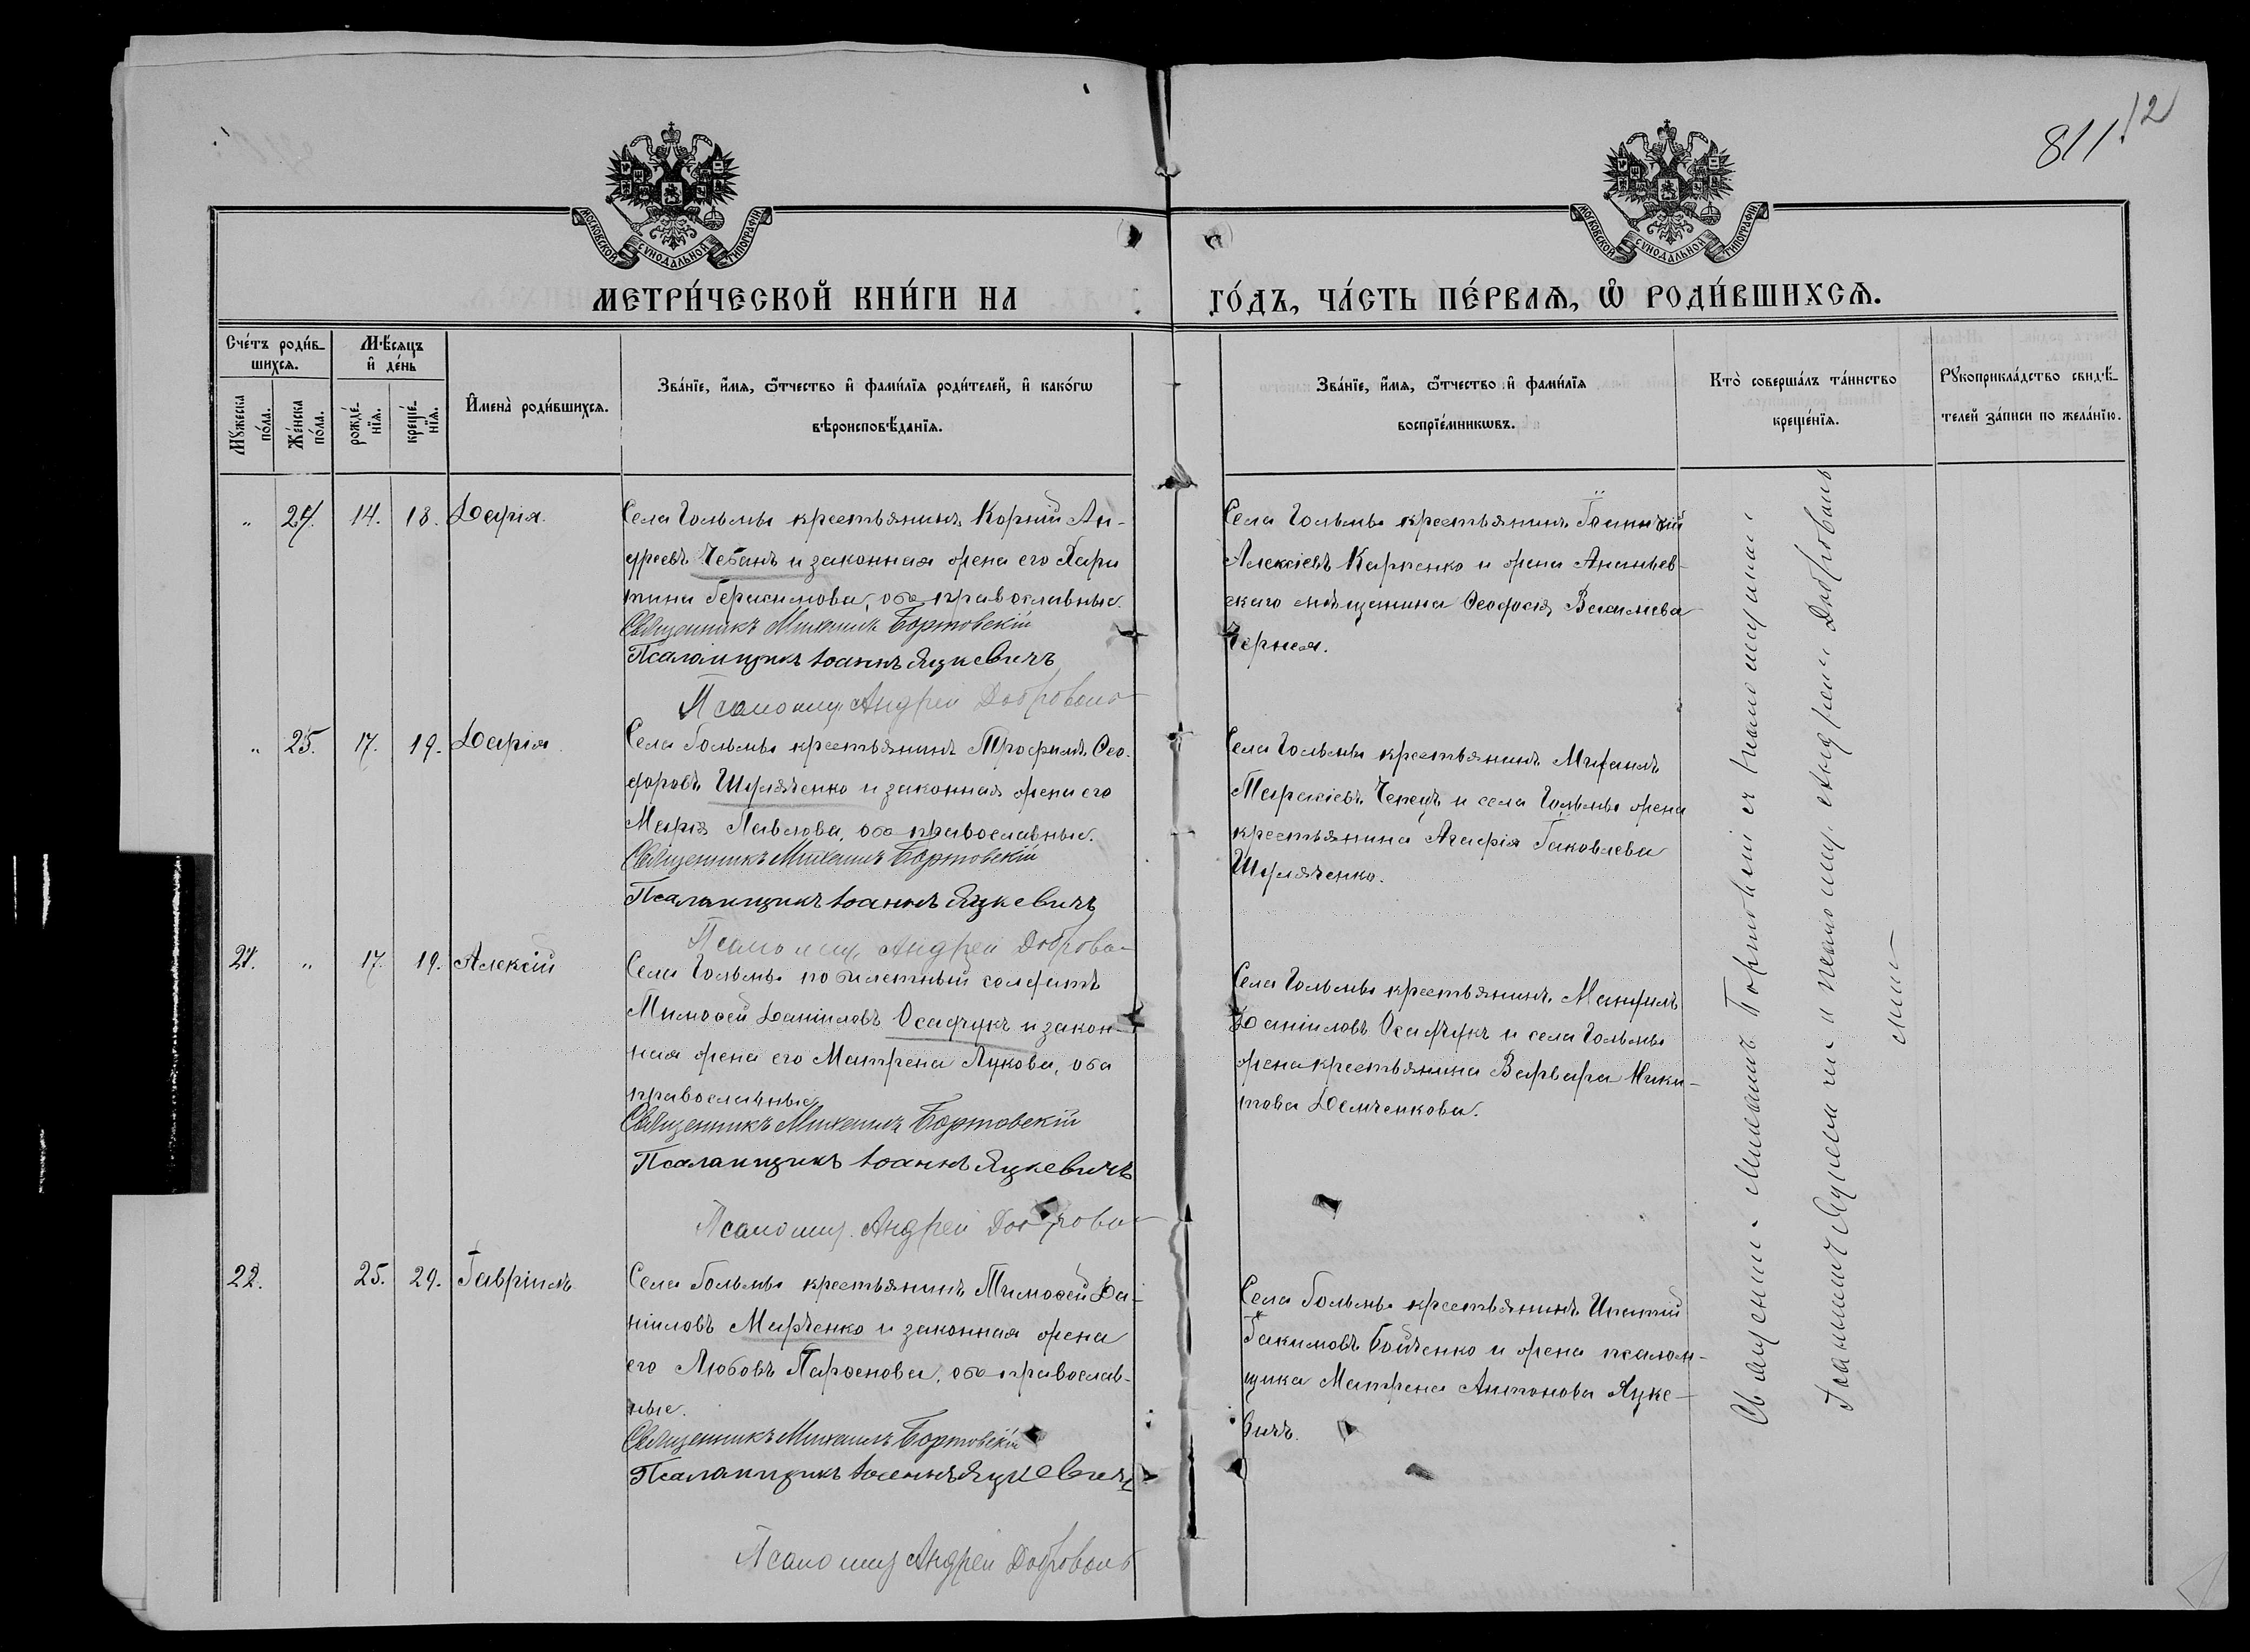 811.
12
МОСКОВСКОЙ СѴНОДАЛЬНОЙ ТИПОГРАФІИ
МОСКОВСКОЙ СѴНОДАЛЬНОЙ ТИПОГРАФІИ
МЕТРИ́ЧЕСКОЙ КНИ́ГИ НА
ГО́ДЪ, ЧА́СТЬ ПЕ́РВАѦ, Ѡ҆ РОДИ́ВШИХСѦ.
Сче́тъ роди́в-
шихсѧ.
Мꙋжеска по́ла.
Же́нска по́ла.
Мѣ́сѧцъ
и҆ де́нь
рожде́-
нїѧ.
креще́-
нїѧ.
И҆мена̀ роди́вшихсѧ.
Зва́нїе, и҆́мѧ, ѻ҆́тчество и҆ фами́лїѧ роди́телей, и҆ како́гѡ
вѣроисповѣ́данїѧ.
Зва́нїе, и҆́мѧ, ѻ҆́тчество и҆ фами́лїѧ
воспрїе́мникѡвъ.
Кто̀ соверша́лъ та́инство
креще́нїѧ.
Рꙋкоприкла́дство свидѣ́-
телей за́писи по жела́нїю.
„ 24. 14. 18. Дарія.
Села Гольмы крестьянинъ Корній Ан-
дреевъ Чебанъ и законная жена его Хари
тина Герасимова, оба православные.
Священникъ Михаилъ Бортовскій
Псаломщикъ Іоаннъ Яцкевичъ
Псаломщ. Андрей Доброволь
Села Гольмы крестьянинъ
Алексіевъ Карпенко и жена Ананьев-
скаго мѣщанина Ѳеодосія Василіева
Черная.
„ 25. 17. 19. Дарія.
Села Гольмы крестьянинъ Трофимъ Ѳео-
доровъ Шуляченко и законная жена его
Марія Павлова, оба православные.
Священникъ Михаилъ Бортовскій
Псаломщикъ Іоаннъ Яцкевичъ
Псаломщ. Андрей Доброво-
Села Гольмы крестьянинъ Михаилъ
Тарасіевъ и села Гольмы жена
крестьянина Агафія Іаковлева
Шуляченко.
21. „ 17. 19. Алексій
Села Гольмы по билетный солдатъ
Тимоѳей Даніиловъ Осадчукъ и закон-
ная жена его Матрена Лукова, оба
православные.
Священникъ Михаилъ Бортовскій
Псаломщикъ Іоаннъ Яцкевичъ
Псаломщ. Андрей Доброво-
Села Гольмы крестьянинъ Мануилъ
Даніиловъ Осадчукъ и села Гольмы
жена крестьянина Варвара Ники-
това Демченкова.
22. 25. 29. Гавріилъ
Села Гольмы крестьянинъ Тимоѳей Да-
ніиловъ Марченко и законная жена
его Любовь Парѳенова, оба православ-
ные.
Священникъ Михаилъ Бортовскій
Псаломщикъ Іоаннъ Яцкевичъ
Псаломщ Андрей Доброволь
Села Гольмы крестьянинъ Ипатій
Іакимовъ Бойченко и жена псалом-
щика Матрена Антонова Яцке-
вичъ.
Священни. Михаилъ Бортовскій съ псаломщиками
Іоанномъ Яцкевичемъ и псаломщ. Андреемъ Доброволь